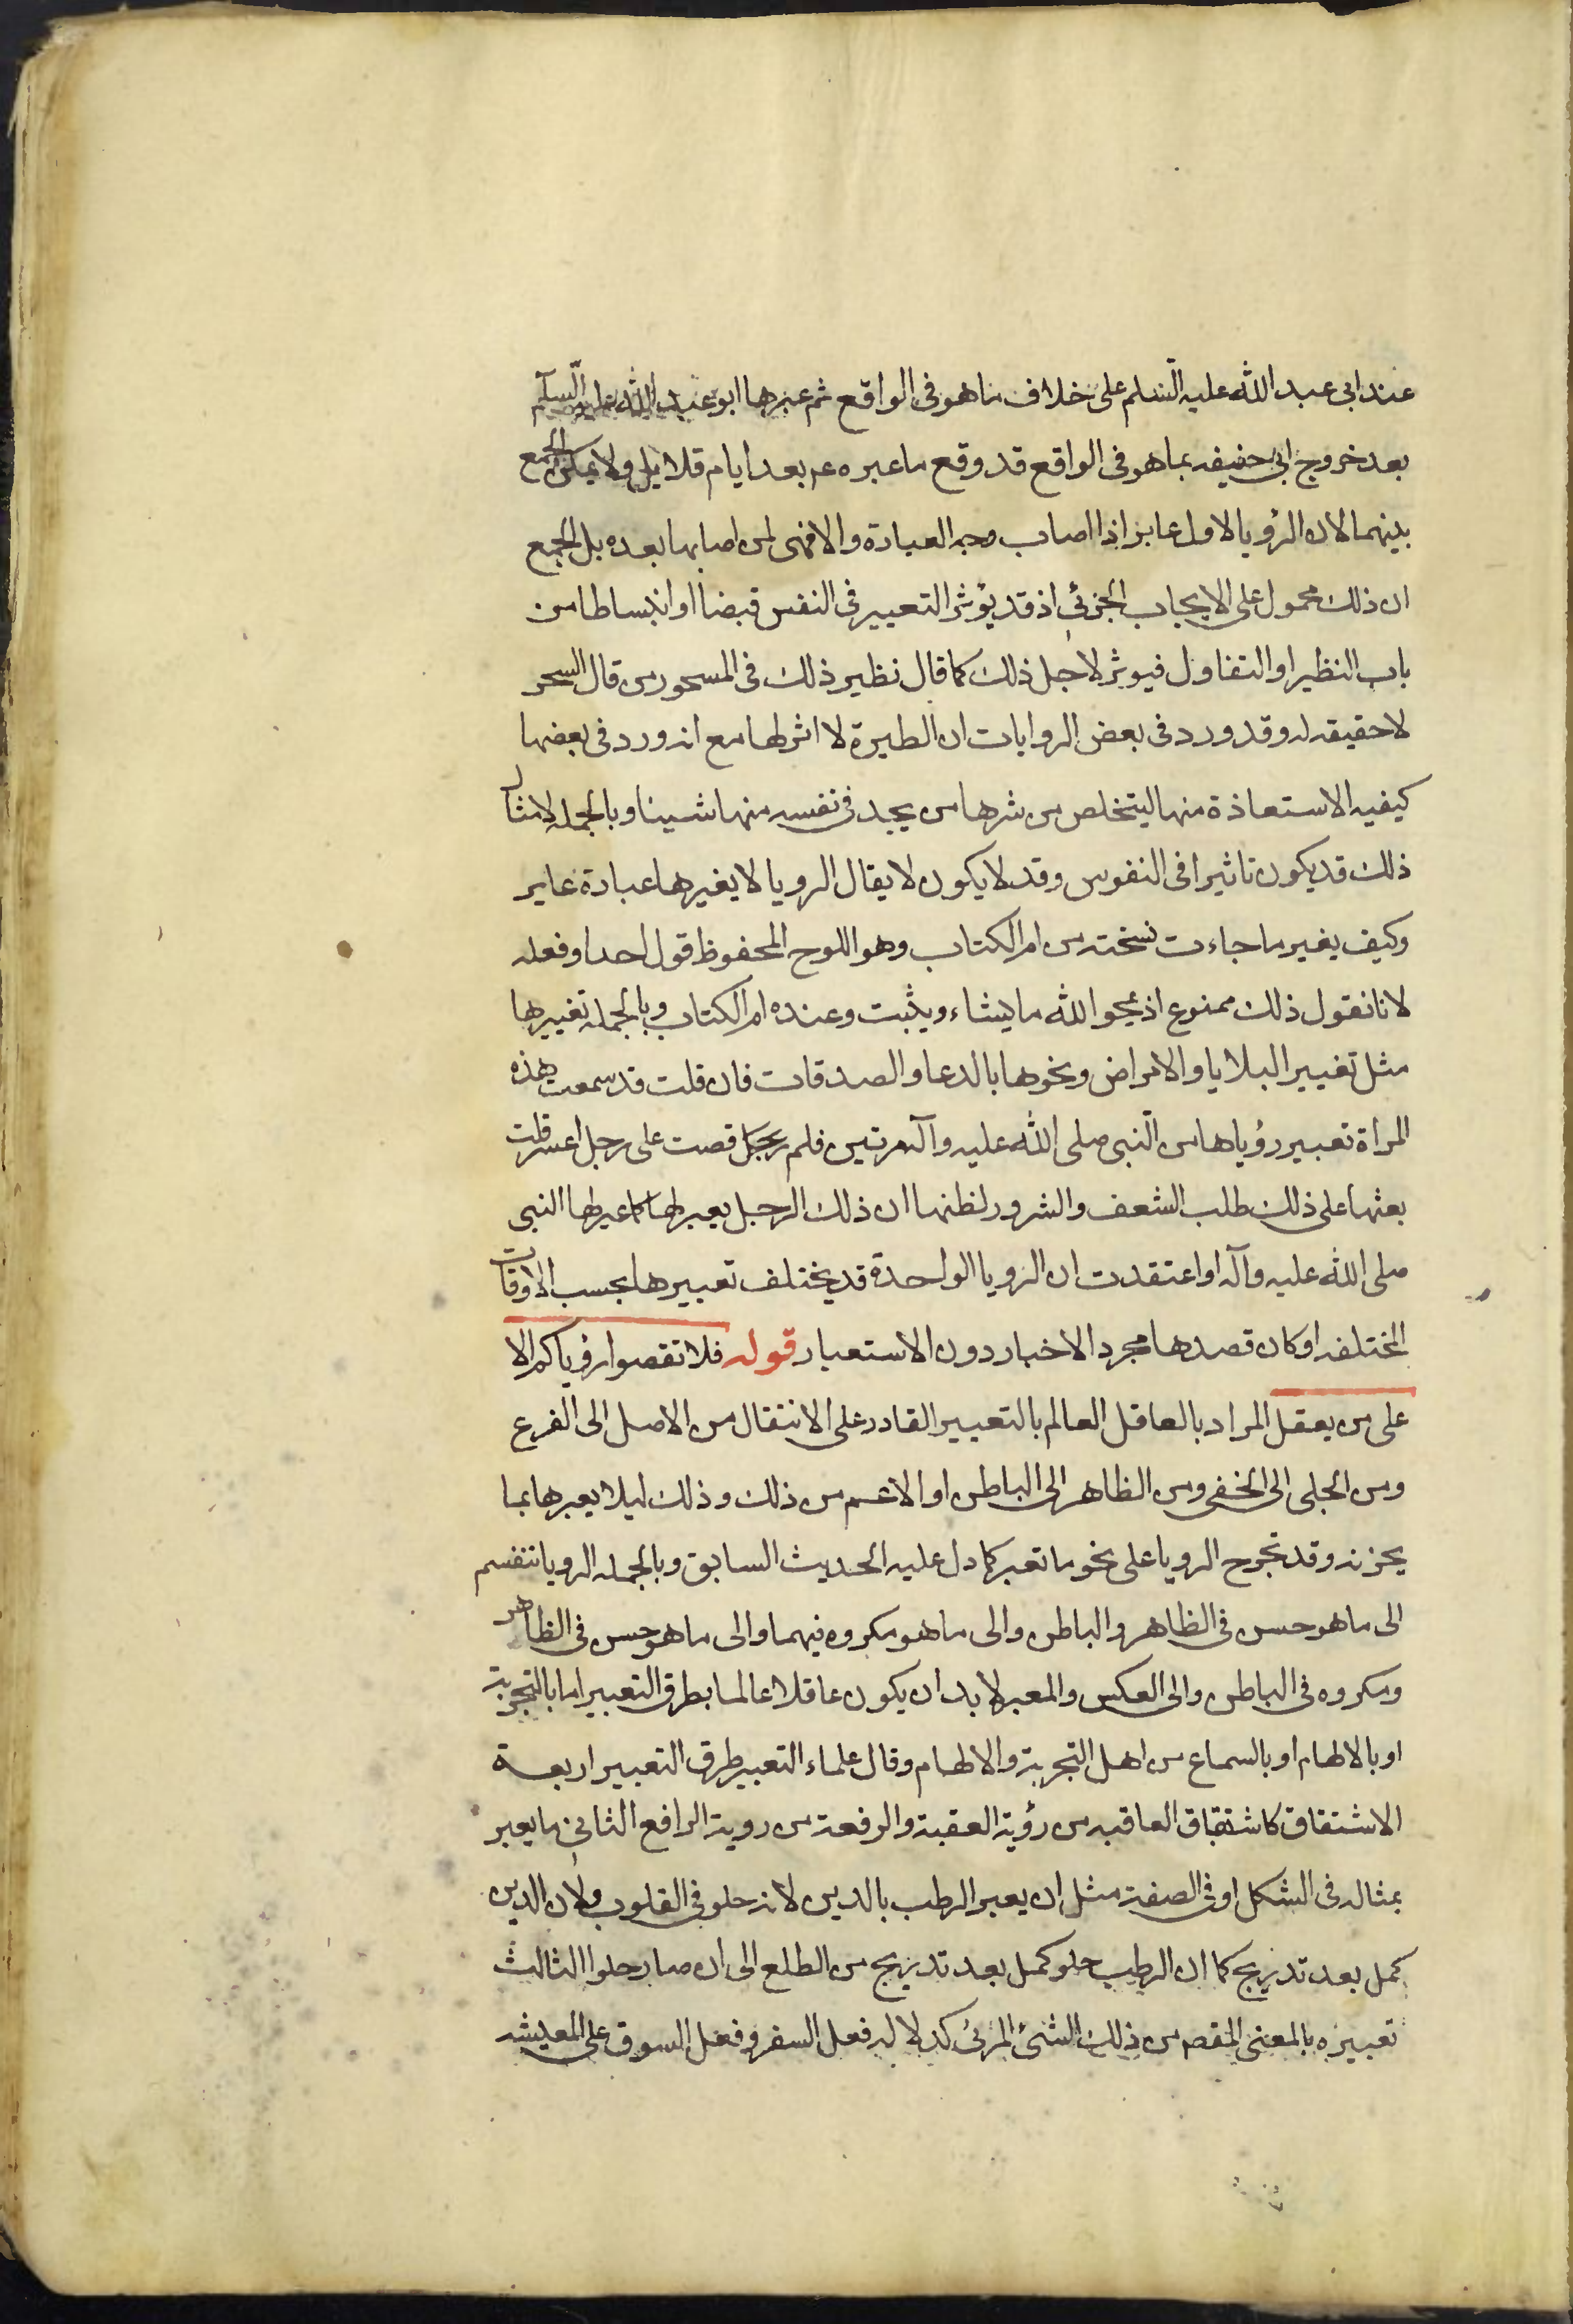 عند ابى عبد الله عليه السّلم على خلاف ما هو فى الواقع ثم عبرها ابو عبد الله عليه السّلم
بعد خروج ابى حنيفه بما هو فى الواقع قد وقع ما عبره عم بعد ايام قلايل ولا يمكن الجمع
بينهما لان الرؤيا لاول عابر اذا اصاب وجه العبارة والا فهى لمن اصابها بعده بل الجمع
ان ذلك محمول على الايجاب الجزئى اذ قد يؤثر التعبير فى النفس قبضا او انبساطا من
باب النظير او التفاول فيوثر لاجل ذلك كما قال نظير ذلك فى المسحور من قال السحر
لا حقيقه له وقد ورد فى بعض الروايات ان الطيرة لا اثر لها مع انه ورد فى بعضها
كيفيه الاستعاذة منها ليتخلص من شرها من يجد فى نفسه منها شينا وبالجمله لامثال
ذلك قد يكون تاثيرا فى النفوس وقد لا يكون لا يقال الرويا لا يغيرها عبارة عابر
وكيف يغير ما جاءت نسخته من ام الكتاب وهو اللوح المحفوظ قول احد او فعله
لانا نقول ذلك ممنوع اذ يمحوا الله ما يشاء ويثبت وعنده ام الكتاب وبالجمله تغييرها
مثل تغيير البلايا والامراض ونحوها بالدعا والصدقات فان قلت قد سمعت هذه
المراة تعبير رؤياها من النّبى صلى الله عليه وآله مرتين فلم قصت على رجل اعسر قلت
بعثها على ذلك طلب الشعف والشرور لظنها ان ذلك الرجل يعبر لها كما عبر لها النبى
صلى الله عليه وآله او اعتقدت ان الرويا الواحدة قد يختلف تعبيرها بحسب الاوقات
المختلفه او كان قصدها مجرد الاخبار دون الاستعبار قوله فلا تقصوا رؤياكم الا
على من يعقل المراد بالعاقل العالم بالتعبير القادر على الانتقال من الاصل الى الفرع
ومن الجلى الى الخفى ومن الظاهر الى الباطن او الاعم من ذلك وذلك ليلا يعبرها بما
يحزنه وقد تخرج الرويا على نحو ما تعبر كما دل عليه الحديث السابق وبالجمله الرويا تنقسم
الى ما هو حسن فى الظاهر والباطن والى ما هو مكروه فيهما والى ما هو حسن فى الظاهر
ومكروه فى الباطن والى العكس والمعبر لا بد ان يكون عاقلا عالما بطرق التعبير اما بالتجربة
او بالالهام او بالسماع من اهل التجربة والالهام وقال علماء التعبير طرق التعبير اربعة
الاشتقاق كاشتقاق العاقبه من رؤية العقبة والرفعة من روية الرافع الثانى ما يعبر
بمثاله فى الشكل او فى الصفة مثل ان يعبر الرطب بالدين لانه حلو فى القلوب ولان الدين
كمل بعد تدريج كما ان الرطب حلو كمل بعد تدريج من الطلع الى ان صار حلوا الثالث
تعبيره بالمعنى المقصم من ذلك الشئ المرئى كدلاله فعل السفر وفعل السوق على المعيشه